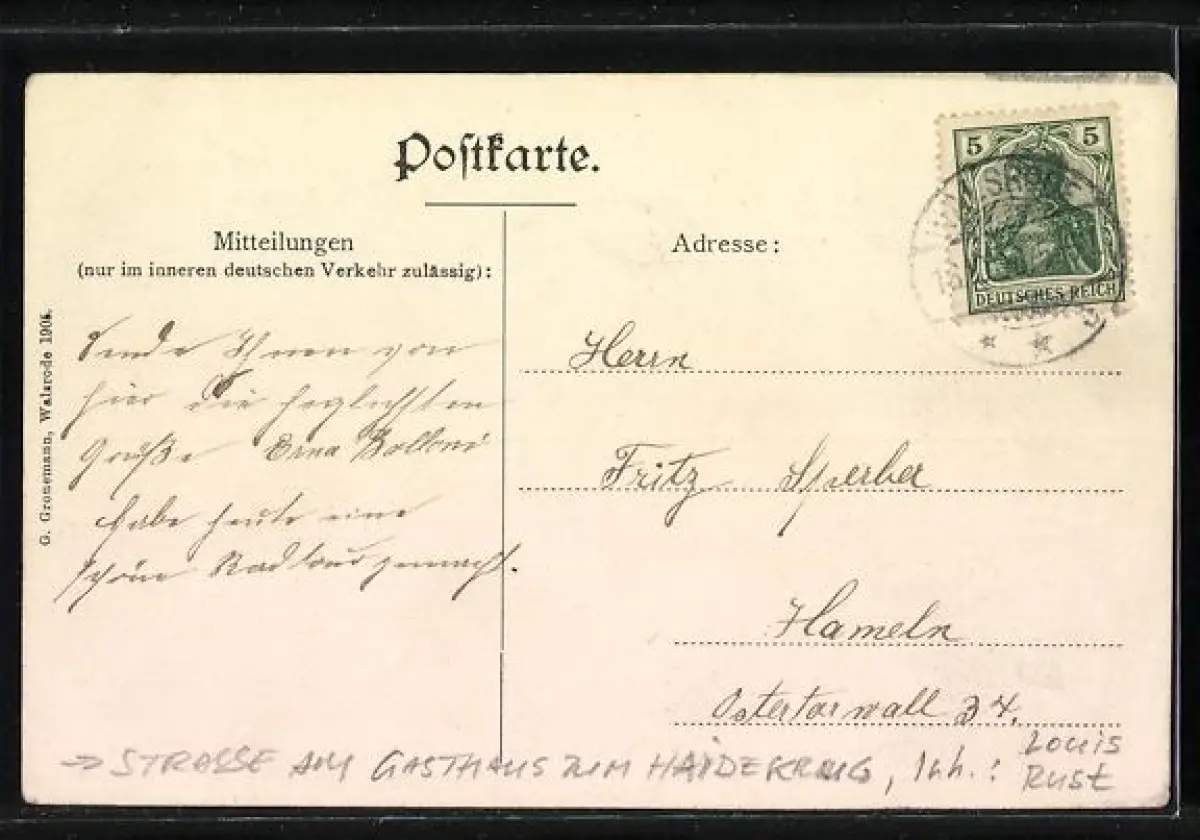 Postkarte.
Mitteilungen
(nur im inneren deutschen Verkehr zulässig):
Sende Ihnen von
hier die herzlichsten
Grüße Erna
Habe heute eine
schöne Radtour gemacht.
G. Gronemann, Walsrode 1904.
Adresse:
5 5
DEUTSCHES REICH
WALSRODE
Herrn
Fritz Sperber
Hameln
Ostertorwall 34.
→ STRASSE AM GASTHAUS ZUM HAIDEKRUG, Inh.: Louis
Rust